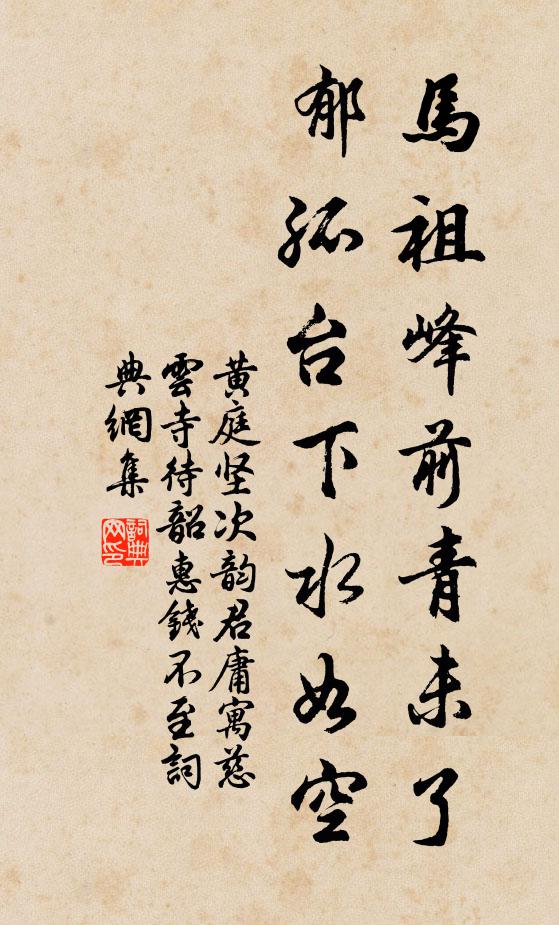 馬祖峰前青未了
郁孤台下水如空
黄庭坚次韵君庸寓慈
雲寺待韶惠錢不至詞
典網集
詞典
网印